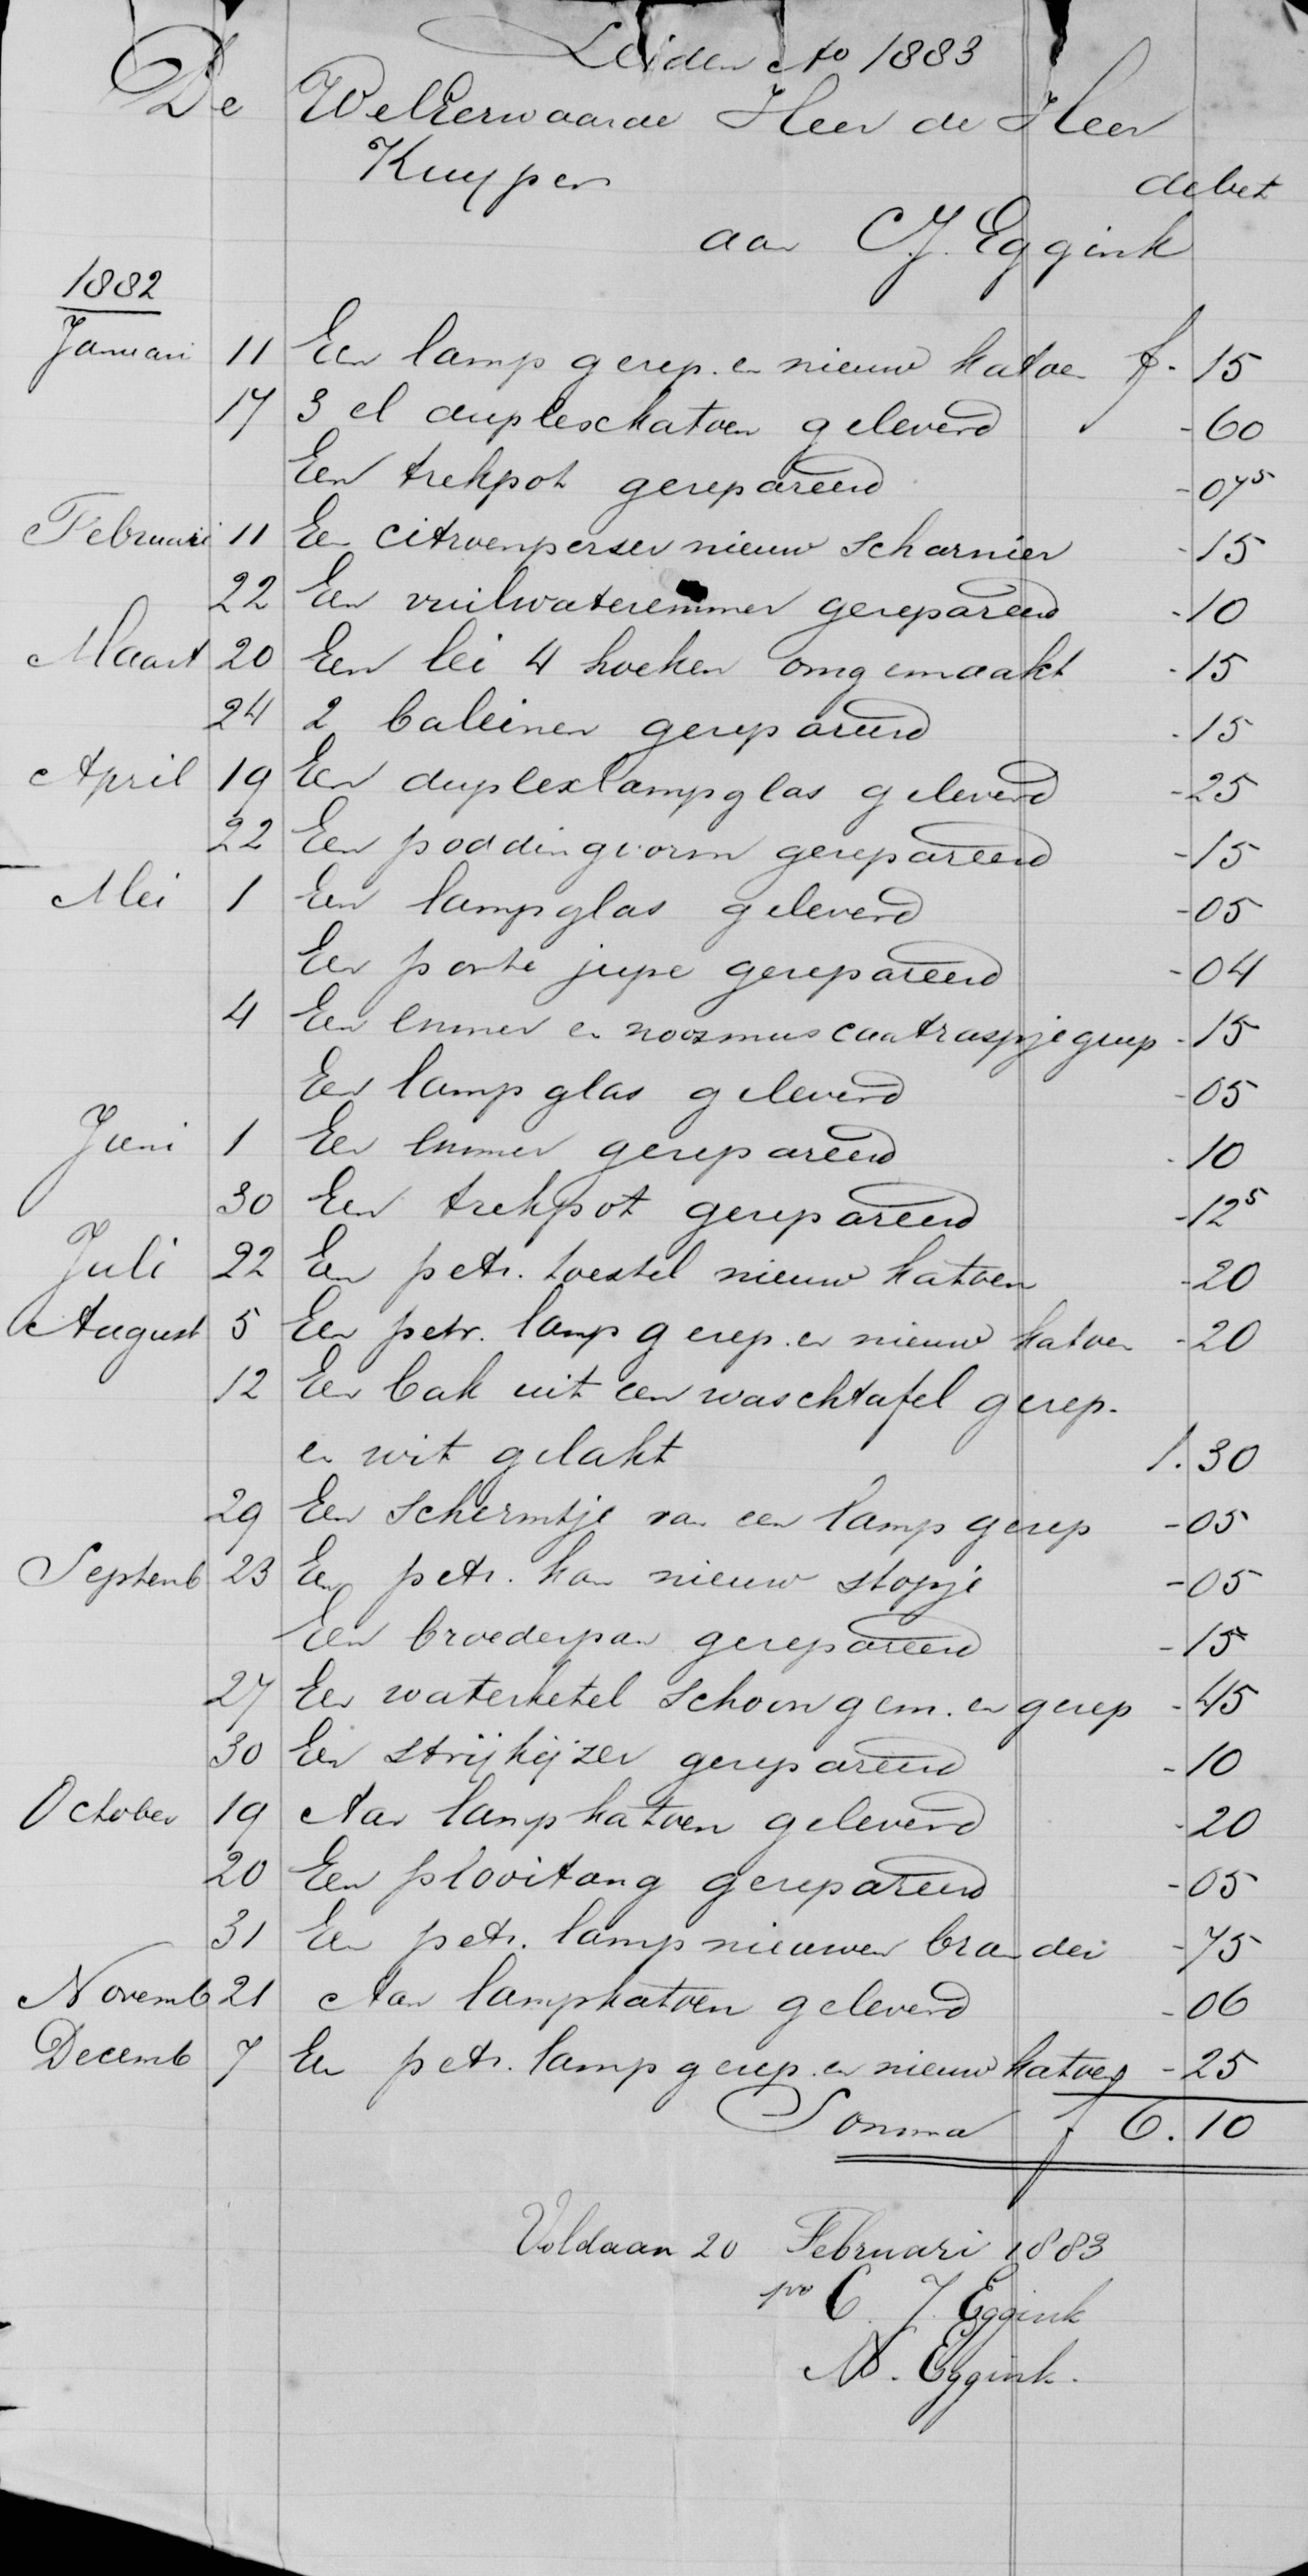 Leiden Ao 1883
De WelEerwaarde Heer de Heer
Kuyper debet
aan C.J. Eggink
1882
Januari 11 Een lamp gerep. en nieuw katoen f - 15
17 3 el duplexkatoen geleverd - 60
Een trekpot gerepareerd - 07⁵
Februari 11 Een citroenperser nieuw scharnier - 15
22 Een vuilwateremmer gerepareerd - 10
Maart 20 Een lei 4 hoeken omgemaakt - 15
24 2 baleinen gerepareerd - 15
April 19 Een duplexlampglas geleverd - 25
22 Een poddingvorm gerepareerd - 15
Mei 1 Een lampglas geleverd - 05
Een porte jupe gerepareerd - 04
4 Een emmer en nootmuscaatraspje gerep - 15
Een lampglas geleverd - 05
Juni 1 Een emmer gerepareerd - 10
30 Een trekpot gerepareerd - 12⁵
Juli 22 Een petr. toestel nieuw katoen - 20
August 5 Een petr. lamp gerep. en nieuw katoen - 20
12 Een bak uit een waschtafel gerep.
en wit gelakt 1. 30
29 Een schermtje van een lamp gerep - 05
Septemb 23 Een petr. kan nieuw stopje - 05
Een broederpan gerepareerd - 15
27 Een waterketel schoongem. en gerep - 45
30 Een strijkijzer gerepareerd - 10
October 19 Aan lampkatoen geleverd - 20
20 Een plooitang gerepareerd - 05
31 Een petr. lamp nieuwen brander - 75
Novemb 21 Aan lampkatoen geleverd - 06
Decemb 7 Een petr. lamp gerep. en nieuw katoen - 25
Somma f 6. 10
Voldaan 20 Februari 1883
pr C. J. Eggink
N. Eggink.